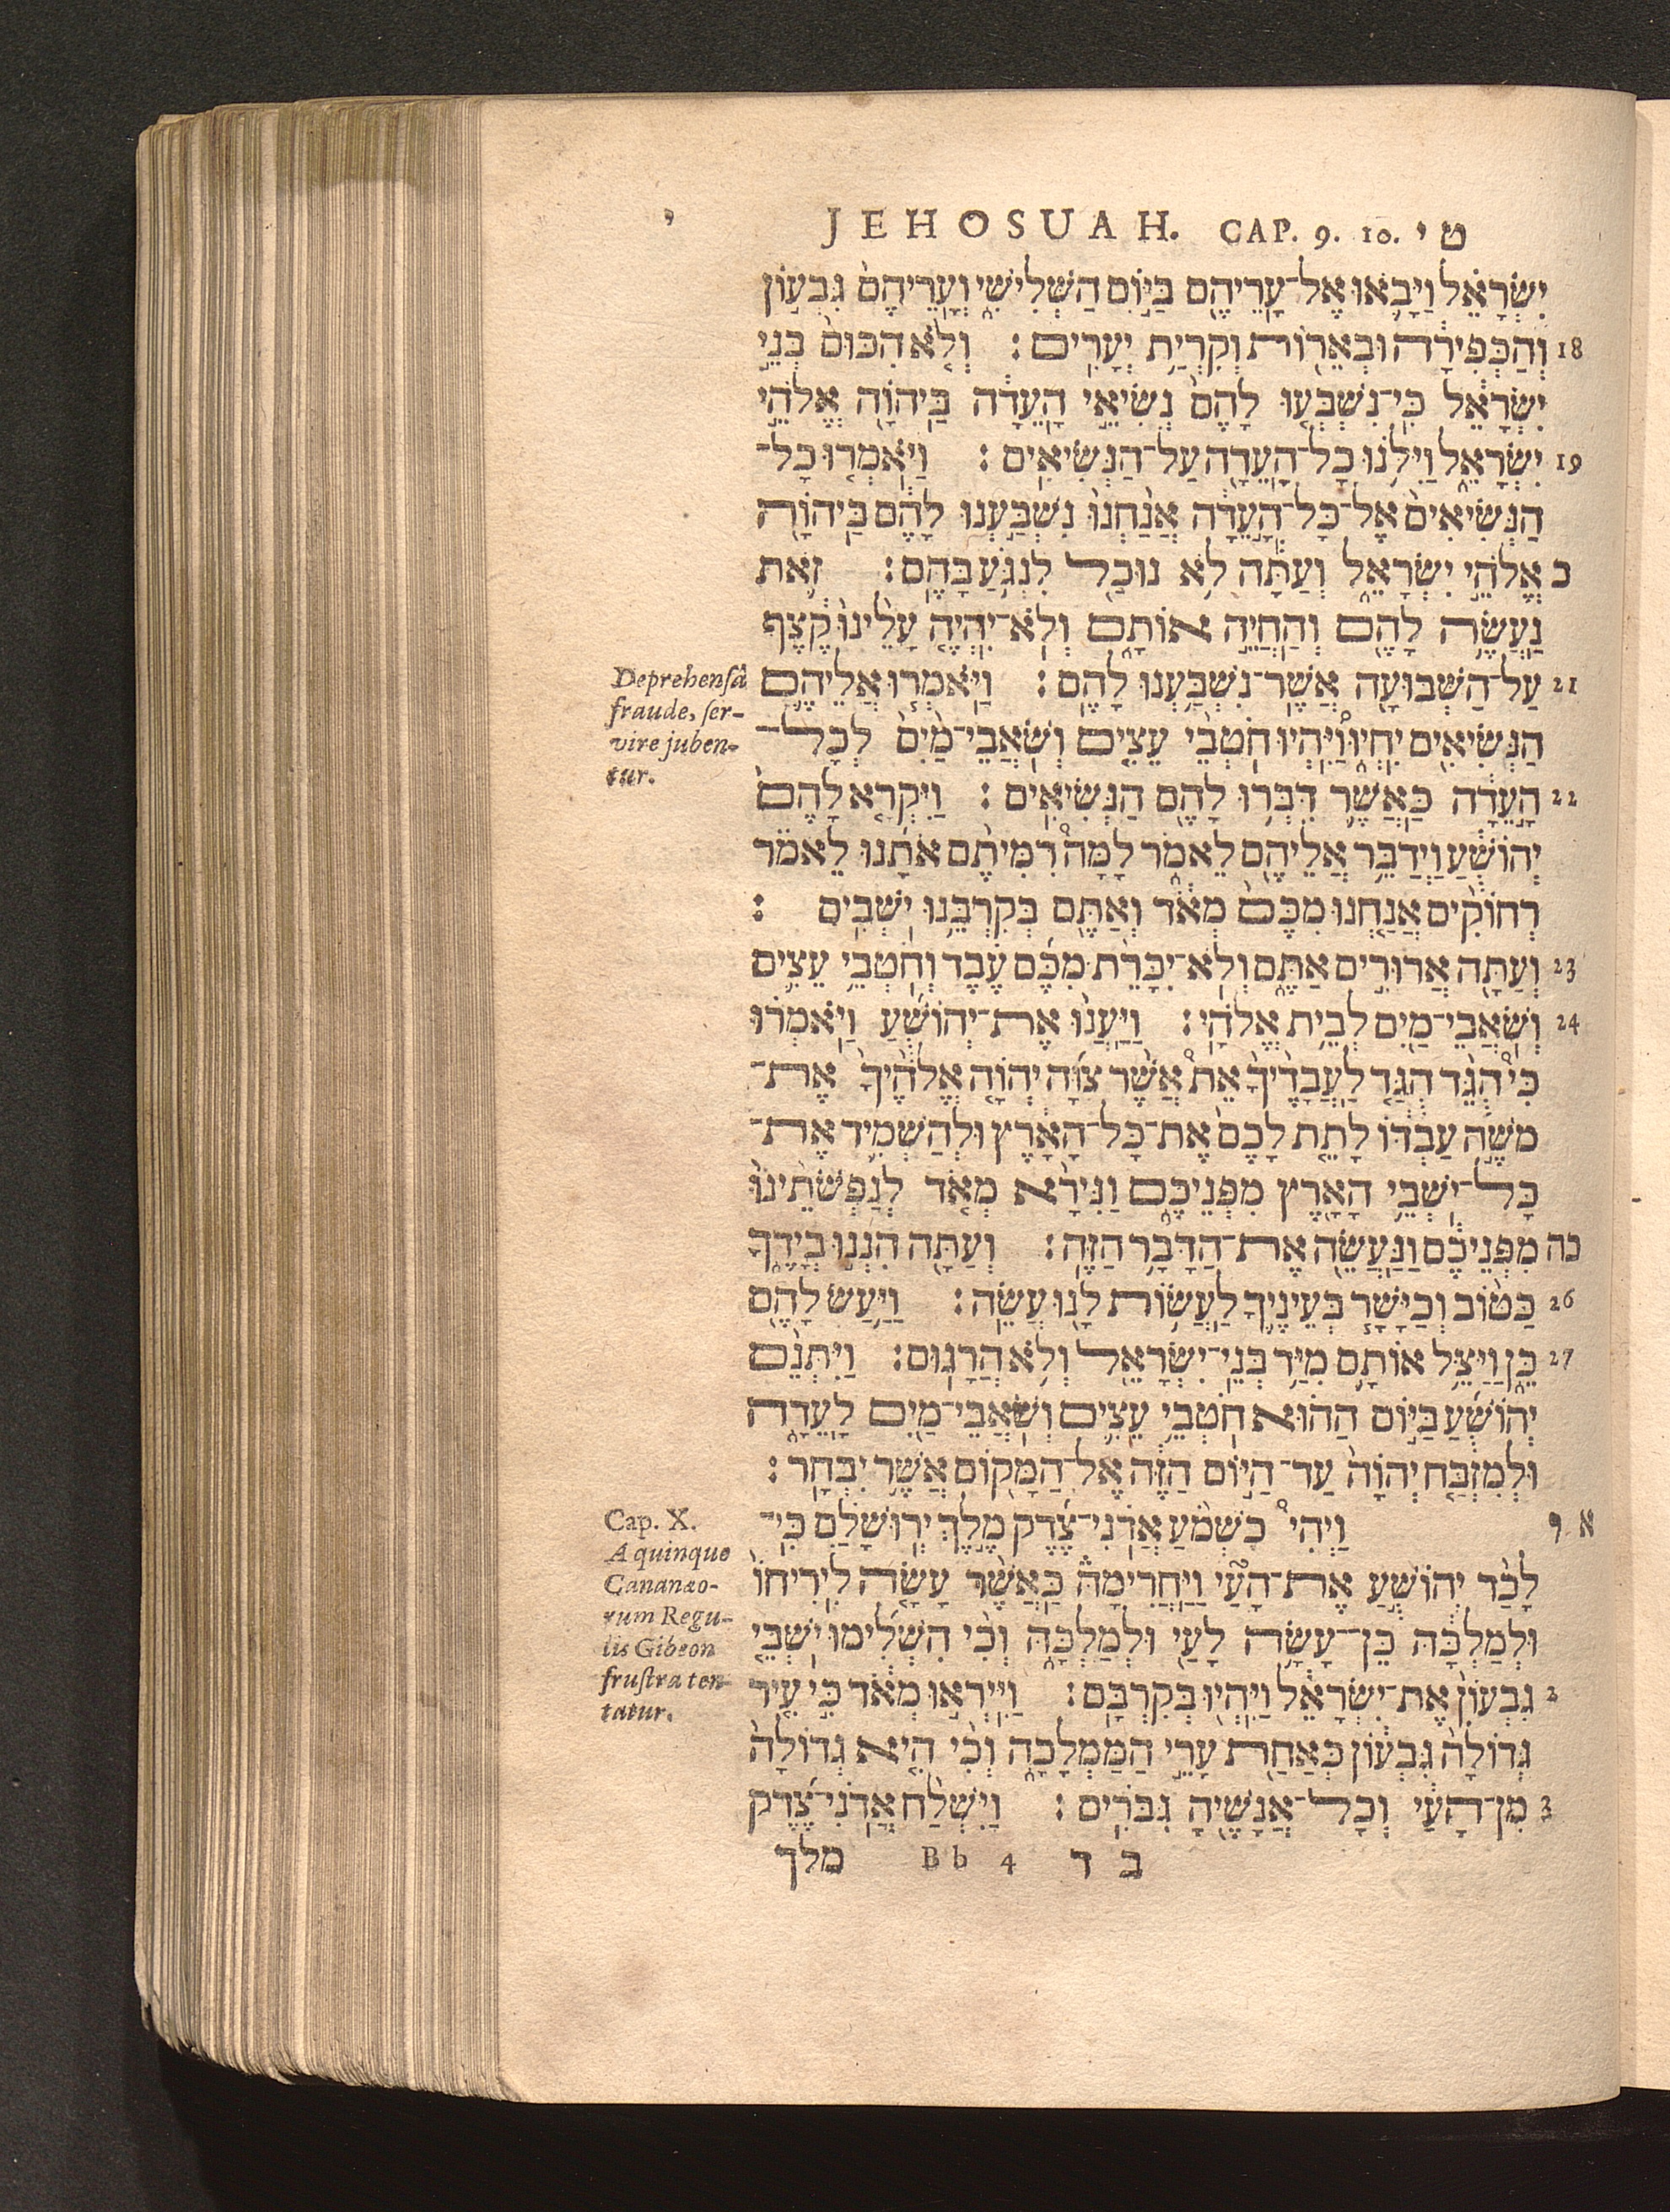 י JEHOSUAH. CAP. 9. 10. ט י
יִשְׂרָאֵל וַיָּבֹאוּ אֶל־עָרֵיהֶם בַּיּוֹם הַשְּׁלִישִׁי וְעָרֵיהֶם גִּבְעוֹן
18 וְהַכְּפִירָה וּבְאֵרוֹת וְקִרְיַת יְעָרִים׃ וְלֹא הִכּוּם בְּנֵי
יִשְׂרָאֵל כִּי־נִשְׁבְּעוּ לָהֶם נְשִׂיאֵי הָעֵדָה בַּיהוָֹה אֱלֹהֵי
19 יִשְׂרָאֵל וַיִּלֹּנוּ כָל־הָעֵדָה עַל־הַנְּשִׂיאִים׃ וַיֹּאמְרוּ כָל־
הַנְּשִׂיאִים אֶל־כָּל־הָעֵדָה אֲנַחְנוּ נִשְׁבַּעְנוּ לָהֶם בַּיהוָֹה
כ אֱלֹהֵי יִשְׂרָאֵל וְעַתָּה לֹא נוּכַל לִנְגֹּעַ בָּהֶם׃ זֹאת
נַעֲשֶׂה לָהֶם וְהַחֲיֵה אוֹתָם וְלֹא־יִהְיֶה עָלֵינוּ קֶצֶף
21 עַל־הַשְּׁבוּעָה אֲשֶׁר־נִשְׁבַּעְנוּ לָהֶם׃ וַיֹּאמְרוּ אֲלֵיהֶם
הַנְּשִׂיאִים יִחְיוּ וַיִּהְיוּ חֹטְבֵי עֵצִים וְשֹׁאֲבֵי־מַיִם לְכָל־
22 הָעֵדָה כַּאֲשֶׁר דִּבְּרוּ לָהֶם הַנְּשִׂיאִים׃ וַיִּקְרָא לָהֶם
יְהוֹשֻׁעַ וַיְדַבֵּר אֲלֵיהֶם לֵאמֹר לָמָּה רִמִּיתֶם אֹתָנוּ לֵאמֹר
רְחוֹקִים אֲנַחְנוּ מִכֶּם מְאֹד וְאַתֶּם בְּקִרְבֵּנוּ יֹשְׁבִים ׃
23 וְעַתָּה אֲרוּרִים אַתֶּם וְלֹא־יִכָּרֵת מִכֶּם עֶבֶד וְחֹטְבֵי עֵצִים
24 וְשֹׁאֲבֵי־מַיִם לְבֵית אֱלֹהָי׃ וַיַּעֲנוּ אֶת־יְהוֹשֻׁעַ וַיֹּאמְרוּ
כִּי הֻגֵּד הֻגַּד לַעֲבָדֶיךָ אֵת אֲשֶׁר צִוָּה יְהוָֹה אֱלֹהֶיךָ אֶת־
מֹשֶׁה עַבְדּוֹ לָתֵת לָכֶם אֶת־כָּל־הָאָרֶץ וּלְהַשְׁמִיד אֶת־
כָּל־יֹשְׁבֵי הָאָרֶץ מִפְּנֵיכֶם וַנִּירָא מְאֹד לְנַפְשֹׁתֵינוּ
כה מִפְּנֵיכֶם וַנַּעֲשֵׂה אֶת־הַדָּבָר הַזֶּה׃ וְעַתָּה הִנְנוּ בְיָדֶךָ
26 כַּטּוֹב וְכַיָּשָׁר בְּעֵינֶיךָ לַעֲשׂוֹת לָנוּ עֲשֵׂה׃ וַיַּעַשׂ לָהֶם
27 כֵּן וַיַּצֵּל אוֹתָם מִיַּד בְּנֵי־יִשְׂרָאֵל וְלֹא הֲרָגוּם׃ וַיִּתְּנֵם
יְהוֹשֻׁעַ בַּיּוֹם הַהוּא חֹטְבֵי עֵצִים וְשֹׁאֲבֵי־מַיִם לָעֵדָה
וּלְמִזְבַּח יְהוָֹה עַד־הַיּוֹם הַזֶּה אֶל־הַמָּקוֹם אֲשֶׁר יִבְחָר׃
א וַיְהִי כִשְׁמֹעַ אֲדֹנִי־צֶדֶק מֶלֶךְ יְרוּשָׁלִַם כִּי־
לָכַד יְהוֹשֻׁעַ אֶת־הָעַי וַיַּחֲרִימָהּ כַּאֲשֶׁר עָשָׂה לִירִיחוֹ
וּלְמַלְכָּהּ כֵּן־עָשָׂה לָעַי וּלְמַלְכָּהּ וְכִי הִשְׁלִימוּ יֹשְׁבֵי
2 גִבְעוֹן אֶת־יִשְׂרָאֵל וַיִּהְיוּ בְּקִרְבָּם׃ וַיִּירְאוּ מְאֹד כִּי עִיר
גְּדוֹלָה גִּבְעוֹן כְּאַחַת עָרֵי הַמַּמְלָכָה וְכִי הִיא גְדוֹלָה
3 מִן־הָעַי וְכָל־אֲנָשֶׁיהָ גִּבֹּרִים׃ וַיִּשְׁלַח אֲדֹנִי־צֶדֶק
ב ד Bb 4 מלך
Deprehensâ
fraude, ser-
vire juben-
tur.
Cap. X.
A quinque
Cananæo-
rum Regu-
lis Gibeon
frustra ten-
tatur.